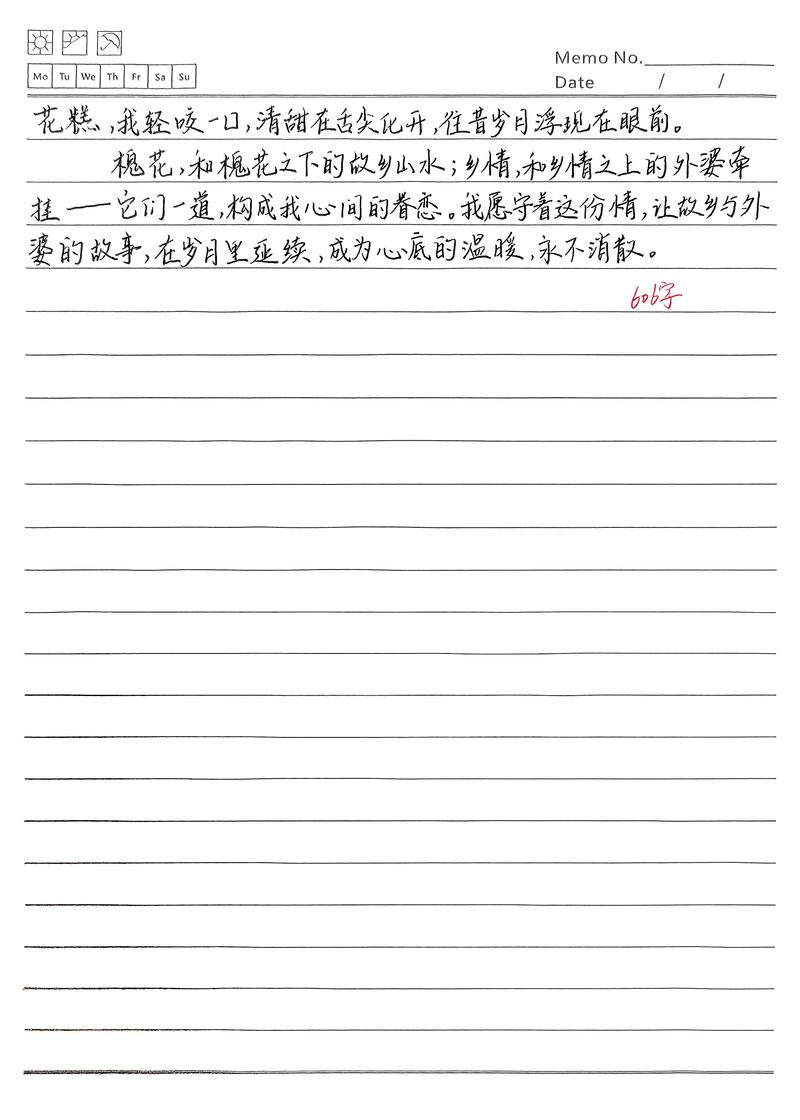 Memo No.
Mo Tu We Th Fr Sa Su
Date / /
花糕,我轻咬一口,清甜在舌尖化开,往昔岁月浮现在眼前。
槐花,和槐花之下的故乡山水;乡情,和乡情之上的外婆牵
挂——它们一道,构成我心间的眷恋。我愿守着这份情,让故乡与外
婆的故事,在岁月里延续,成为心底的温暖,永不消散。
606字